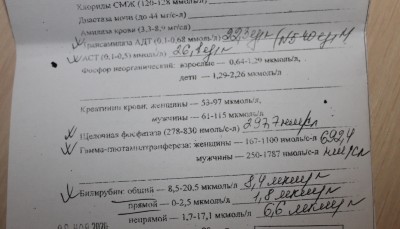 Хлориды СМЖ (120-128 ммоль/л)
Диастаза мочи (до 44 мг/с-л)
Амилаза крови (3,3-8,9 мг/сл)
Трансаминаза АЛТ (0,1-0,68 ммоль/л)
АСТ (0,1-0,45) ммоль/л 26,1 ед/л
Фосфор неорганический: взрослые — 0,64-1,29 ммоль/л,
дети — 1,29-2,26 ммоль/л
Креатинин крови: женщины — 53-97 мкмоль/л,
мужчины — 61-115 мкмоль/л
Щелочная фосфатаза (278-830 нмоль/с-л) 297,7 нм/сл
Гамма-глютамилтрансфераза: женщины — 167-1100 нмоль/с-л 699,4
мужчины — 250-1787 нмоль/с-л нм/сл
Билирубин: общий — 8,5-20,5 мкмоль/л 8,4 мкм/л
прямой — 0-2,5 мкмоль/л 1,8 мкм/л
непрямой — 1,7-17,1 мкмоль/л 6,6 мкм/л